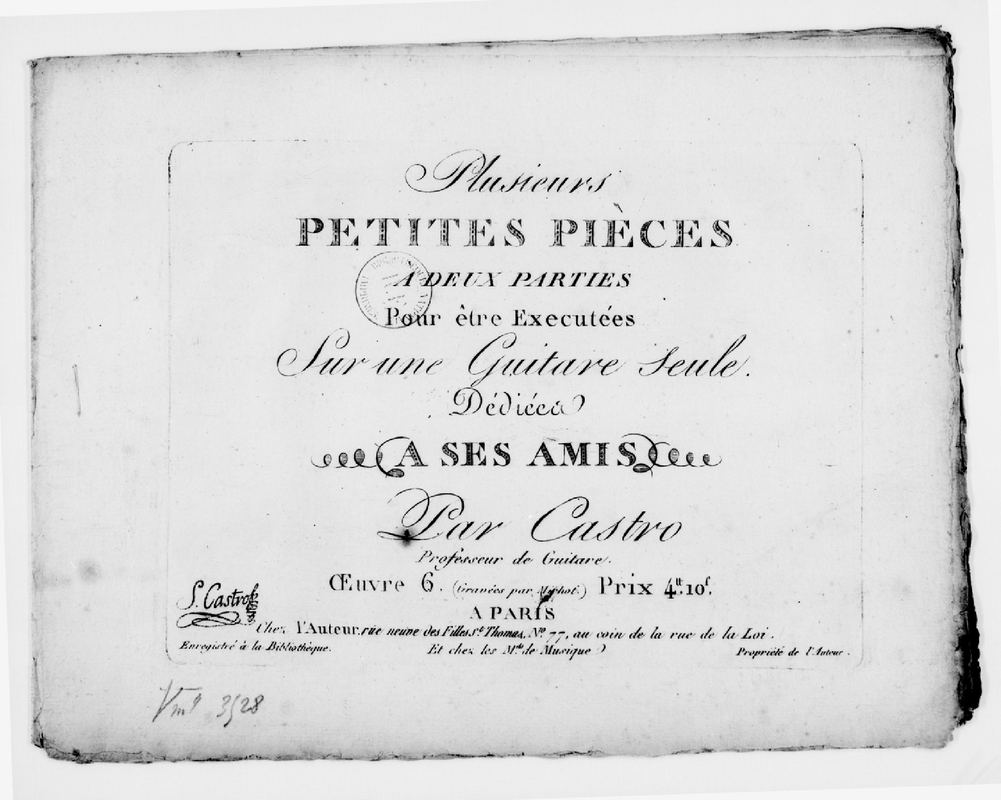 Plusieurs
PETITES PIÈCES
A DEUX PARTIES
Pour être Executées
Sur une Guitare Seule.
Dédiées
A SES AMIS
Par Castro
Professeur de Guitare.
Œuvre 6. (Gravées par Michot.) Prix 4ᵗᵗ 10ˢ.
A PARIS
S. Castro
Chez l'Auteur, rüe neuve des Filles Sᵗ Thomas, Nº 77, au coin de la rue de la Loi.
Enregistré à la Bibliothèque. Et chez les Mᵈˢ de Musique Propriété de l'Auteur.
Vm⁹ 3528